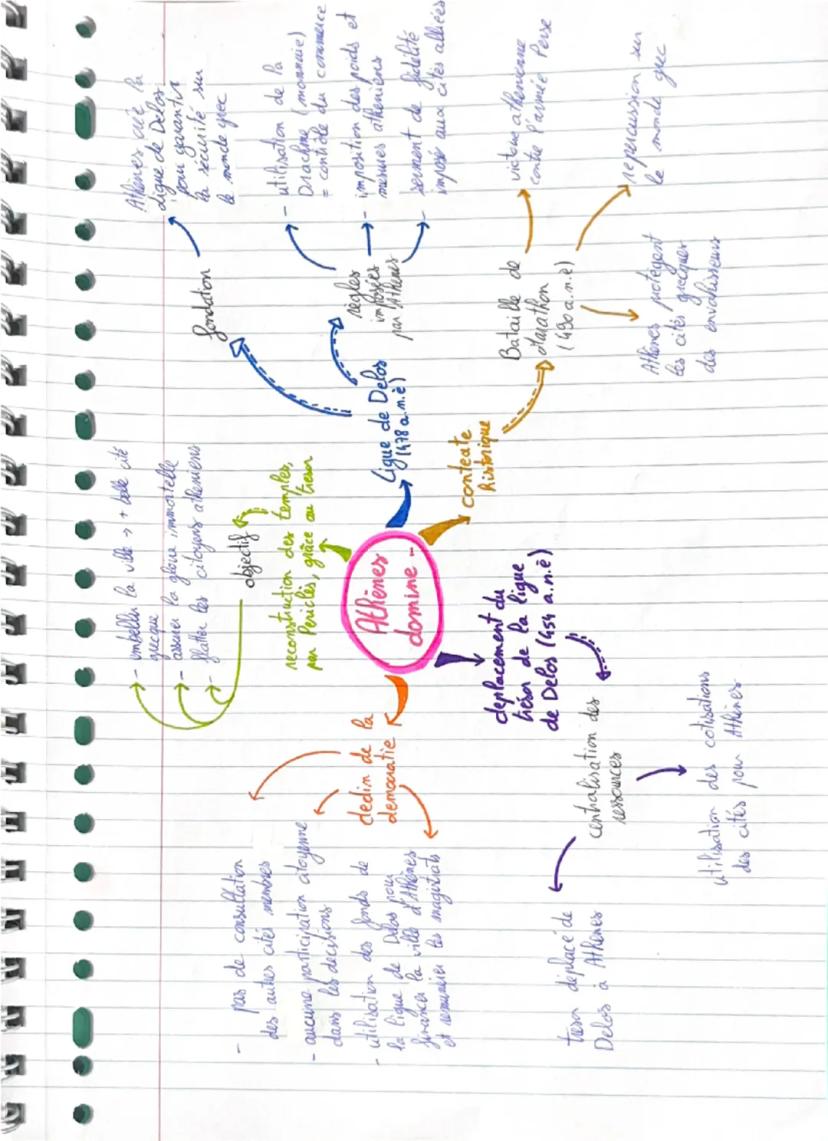 Athènes
domine -
Ligue de Delos
(478 a.n.è)
fondation
Athènes crée la
Ligue de Delos
pour garantir
la sécurité sur
le monde grec
règles
imposées
par Athènes
- utilisation de la
Drachme (monnaie)
= contrôle du commerce
- imposition des poids et
mesures athéniens
- serment de fidélité
imposé aux cités alliées
contexte
historique
Bataille de
Marathon
(490 a.n.è)
victoire athénienne
contre l'armée Perse
repercussion sur
le monde grec
Athènes protègent
les cités grecques
des envahisseurs
déplacement du
trésor de la ligue
de Delos (454 a.n.è)
centralisation des
ressources
utilisation des cotisations
des cités pour Athènes
trésor déplacé de
Delos à Athènes
déclin de la
démocratie
- pas de consultation
des autres cités membres
- aucune participation citoyenne
dans les décisions
- utilisation des fonds de
la ligue de Delos pour
financer la ville d'Athènes
et rémunérer les magistrats
reconstruction des temples,
par Periclès, grâce au trésor
objectif
- embellir la ville → + belle cité
grecque
- assurer la gloire immortelle
- flatter les citoyens athéniens